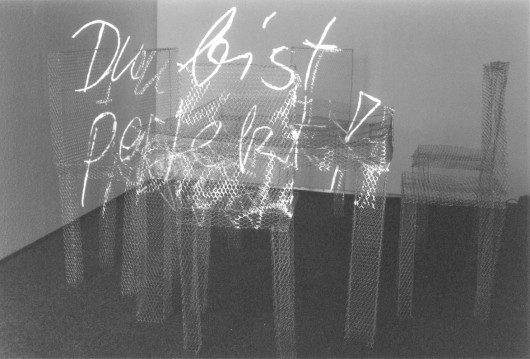 Du bist
perfekt!